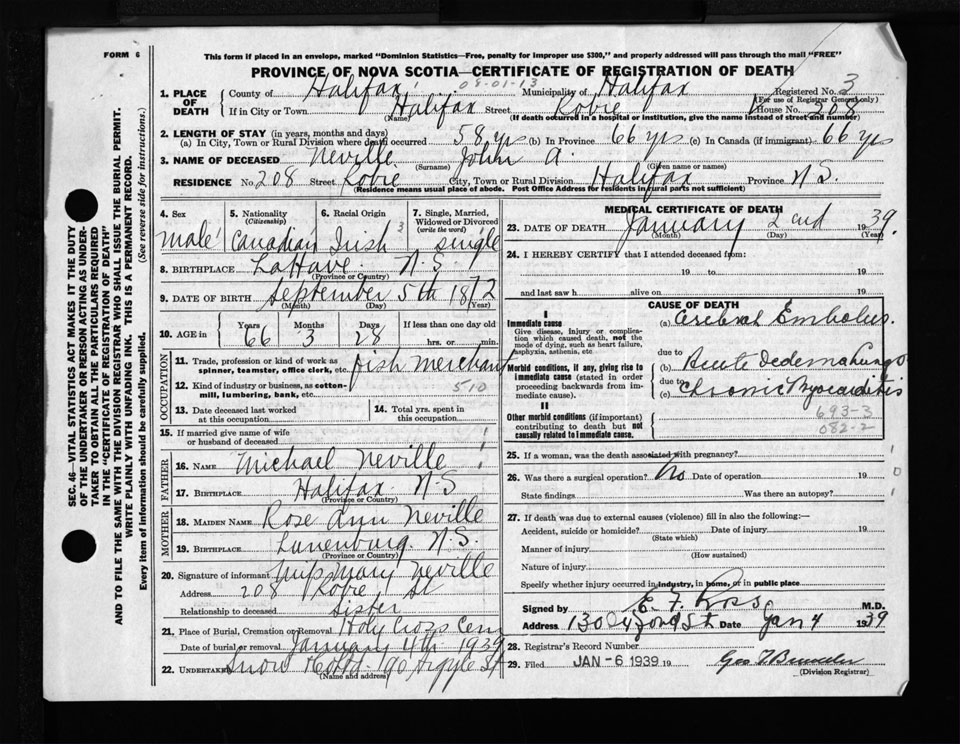 FORM 6
This form if placed in an envelope, marked "Dominion Statistics—Free, penalty for improper use $300," and properly addressed will pass through the mail "FREE"
PROVINCE OF NOVA SCOTIA—CERTIFICATE OF REGISTRATION OF DEATH
08-01-13
1. PLACE OF DEATH County of Halifax Municipality of Halifax Registered No. 3
(For use of Registrar General only)
If in City or Town Halifax Street Robie House No. 208
(Name) (If death occurred in a hospital or institution, give the name instead of street and number)
2. LENGTH OF STAY (in years, months and days)
(a) In City, Town or Rural Division where death occurred 58 yrs (b) In Province 66 yrs (c) In Canada (if immigrant) 66 yrs
3. NAME OF DECEASED Neville John A.
(Surname) (Given name or names)
RESIDENCE No. 208 Street Robie City, Town or Rural Division Halifax Province N.S.
(Residence means usual place of abode. Post Office Address for residents in rural parts not sufficient)
SEC. 46—VITAL STATISTICS ACT MAKES IT THE DUTY
OF THE UNDERTAKER OR PERSON ACTING AS UNDER-
TAKER TO OBTAIN ALL THE PARTICULARS REQUIRED
IN THE "CERTIFICATE OF REGISTRATION OF DEATH"
AND TO FILE THE SAME WITH THE DIVISION REGISTRAR WHO SHALL ISSUE THE BURIAL PERMIT.
WRITE PLAINLY WITH UNFADING INK. THIS IS A PERMANENT RECORD.
Every item of information should be carefully supplied. (See reverse side for Instructions.)
4. Sex Male
5. Nationality (Citizenship) Canadian
6. Racial Origin Irish 3
7. Single, Married, Widowed or Divorced (write the word) single
8. BIRTHPLACE LaHave N.S.
(Province or Country)
9. DATE OF BIRTH September 5th 1872
(Month) (Day) (Year)
10. AGE in Years 66 Months 3 Days 28 If less than one day old hrs. or min.
OCCUPATION
11. Trade, profession or kind of work as spinner, teamster, office clerk, etc. fish merchant
12. Kind of industry or business, as cotton-mill, lumbering, bank, etc. 510
13. Date deceased last worked at this occupation
14. Total yrs. spent in this occupation
15. If married give name of wife or husband of deceased
FATHER
16. NAME Michael Neville
17. BIRTHPLACE Halifax N.S
(Province or Country)
MOTHER
18. MAIDEN NAME Rose Ann Neville
19. BIRTHPLACE Lunenburg N.S.
(Province or Country)
20. Signature of informant Mary Neville
Address 208 Robie St
Relationship to deceased Sister
21. Place of Burial, Cremation or Removal Holy Cross Cem
Date of burial or removal January 4th 1939
22. UNDERTAKER Snow 90 Argyle St
(Name and address)
MEDICAL CERTIFICATE OF DEATH
23. DATE OF DEATH January 2nd 1939
(Month) (Day) (Year)
24. I HEREBY CERTIFY that I attended deceased from:
19 to 19
and last saw h alive on 19
CAUSE OF DEATH
I
Immediate cause
Give disease, injury or complication which caused death, not the mode of dying, such as heart failure, asphyxia, asthenia, etc
(a) Cerebral Embolus
due to
Morbid conditions, if any, giving rise to immediate cause (stated in order proceeding backwards from immediate cause).
(b) Acute Oedema Lungs
due to
(c) Chronic Myocarditis
II
Other morbid conditions (if important) contributing to death but not causally related to immediate cause.
693-3
082-2
25. If a woman, was the death associated with pregnancy?
26. Was there a surgical operation? No Date of operation 19
State findings Was there an autopsy?
27. If death was due to external causes (violence) fill in also the following:—
Accident, suicide or homicide? Date of injury 19
(State which)
Manner of injury
(How sustained)
Nature of injury
Specify whether injury occurred in industry, in home, or in public place
Signed by E. F. Ross M.D.
Address 130 Oxford St. Date Jan 4 1939
28. Registrar's Record Number
29. Filed JAN -6 1939 19
(Division Registrar)